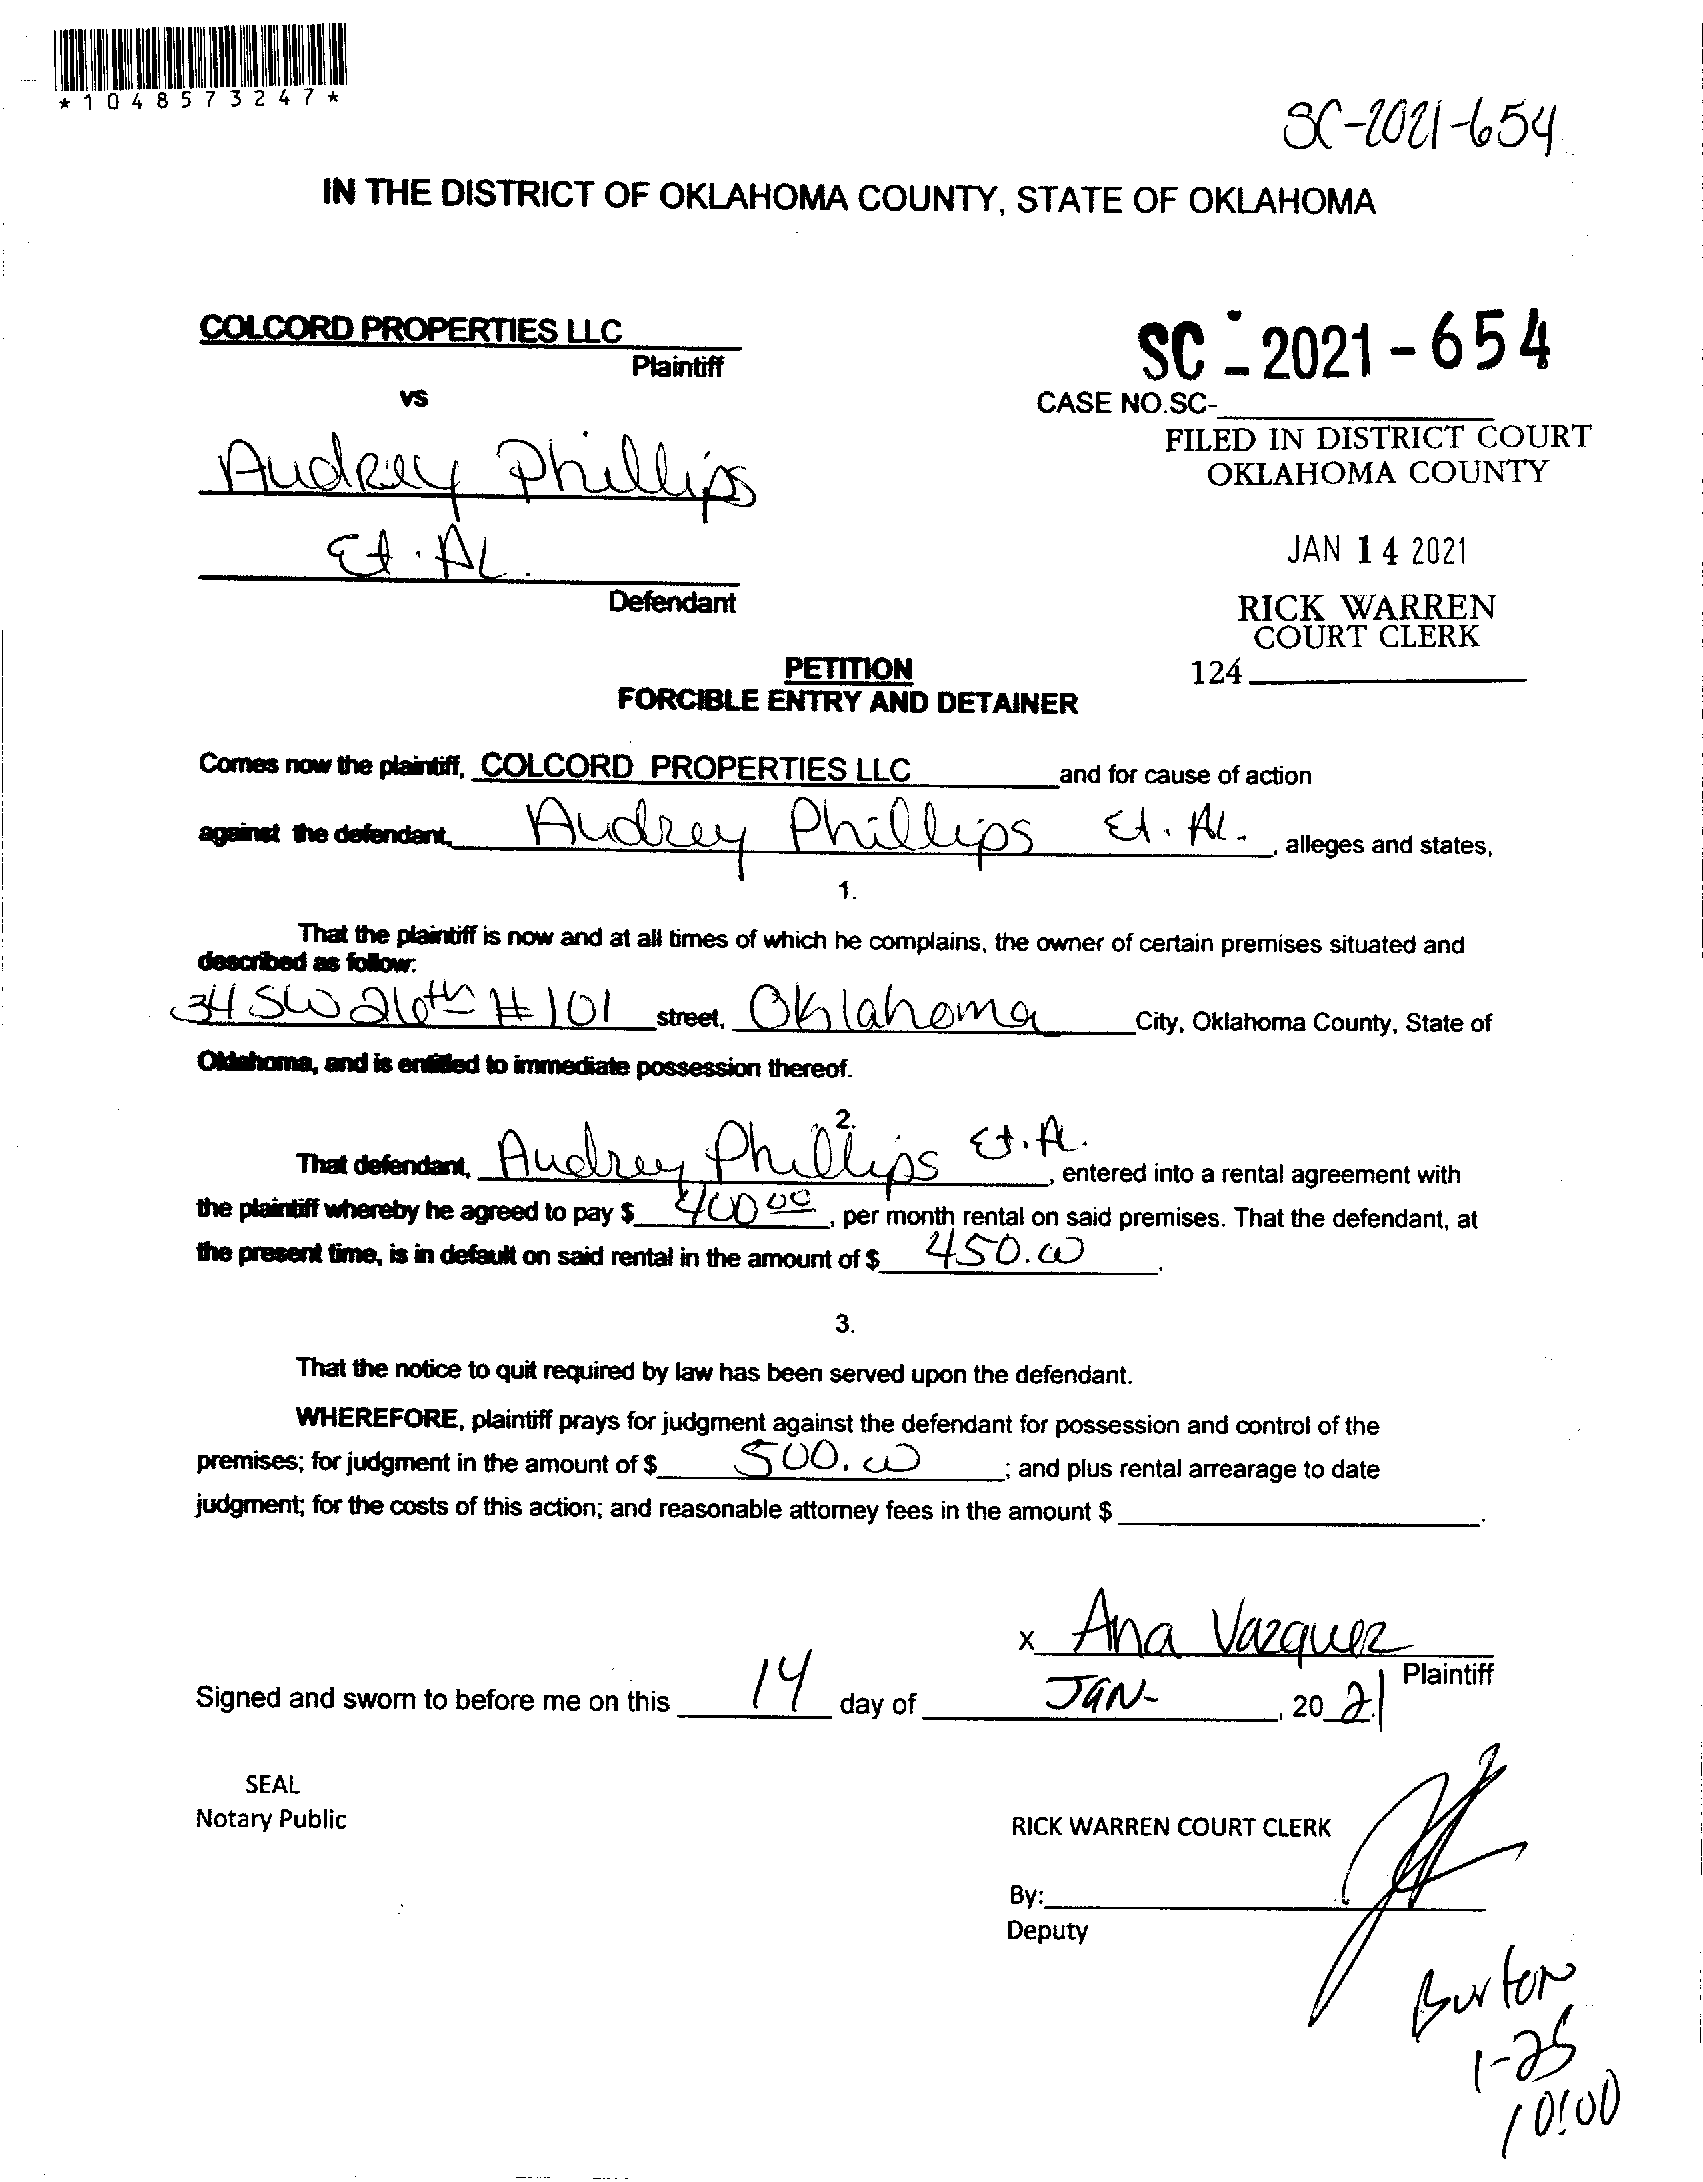 *1048573247*
SC-2021-654
IN THE DISTRICT OF OKLAHOMA COUNTY, STATE OF OKLAHOMA
COLCORD PROPERTIES LLC
Plaintiff
vs
SC-2021-654
CASE NO.SC-
Audrey Phillips
Et. Al.
Defendant
FILED IN DISTRICT COURT
OKLAHOMA COUNTY
JAN 14 2021
RICK WARREN
COURT CLERK
124
PETITION
FORCIBLE ENTRY AND DETAINER
Comes now the plaintiff, COLCORD PROPERTIES LLC and for cause of action
against the defendant, Audrey Phillips Et. Al. , alleges and states,
1.
That the plaintiff is now and at all times of which he complains, the owner of certain premises situated and
described as follow:
34 SW 26th #101 street, Oklahoma City, Oklahoma County, State of
Oklahoma, and is entitled to immediate possession thereof.
2.
That defendant, Audrey Phillips Et. Al. , entered into a rental agreement with
the plaintiff whereby he agreed to pay $ 400 00 , per month rental on said premises. That the defendant, at
the present time, is in default on said rental in the amount of $ 450.00 .
3.
That the notice to quit required by law has been served upon the defendant.
WHEREFORE, plaintiff prays for judgment against the defendant for possession and control of the
premises; for judgment in the amount of $ 500.00 ; and plus rental arrearage to date
judgment; for the costs of this action; and reasonable attorney fees in the amount $ .
x Ana Vazquez
Plaintiff
Signed and sworn to before me on this 14 day of JAN- , 20 21
SEAL
Notary Public
RICK WARREN COURT CLERK
By:
Deputy
Burton
1-25
10:00